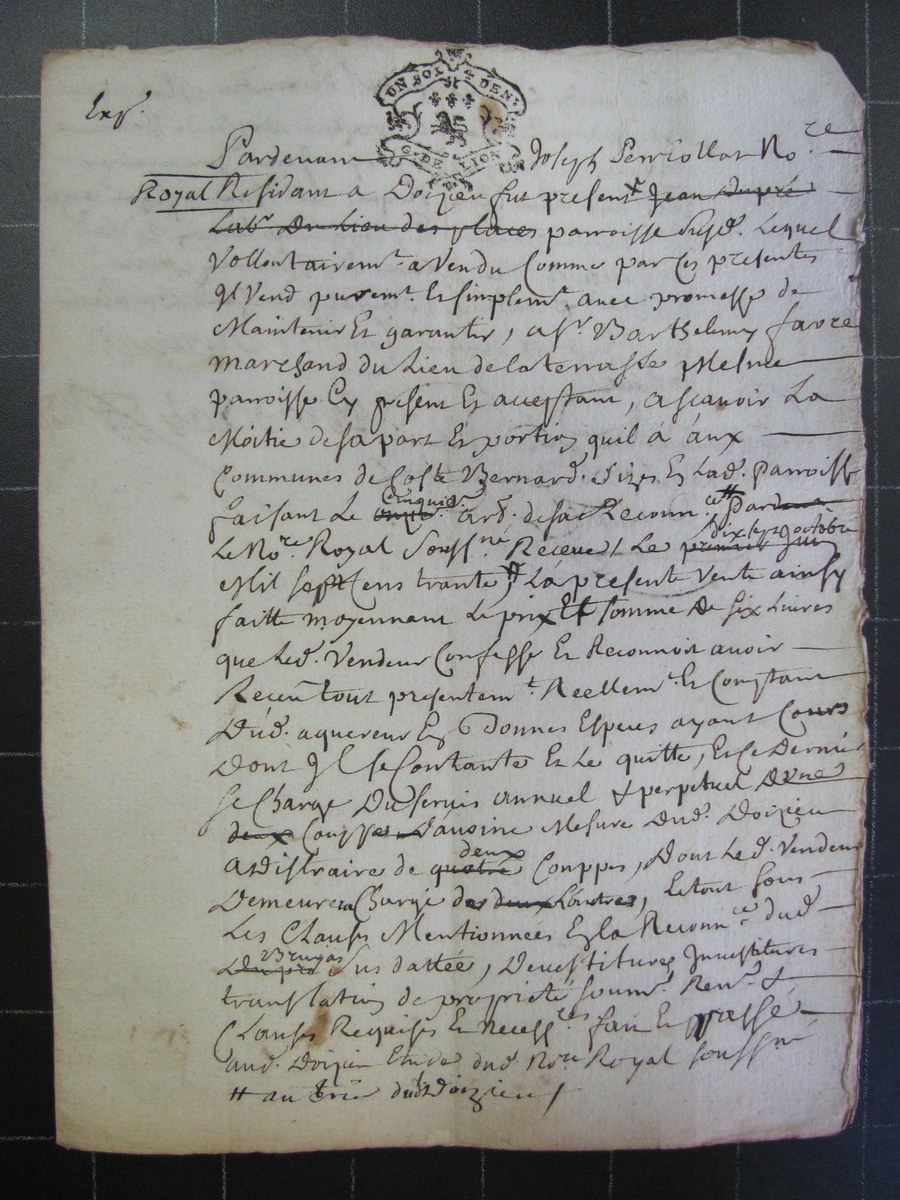 UN SOL 4 DENrs
G. DE LION
Exp.
Pardevant Joseph Perrollat No.re
Royal Residant a Doizieu fut present Jean Dupré
Lab.r du Lieu des places parroisse susd. Lequel
Vollontairem.t a Vendu Comme par Ces presentes
Il Vend purem.t Et simplem.t avec promesse de
Maintenir Et garantir, a s.r Barthelemy favre
marchand du Lieu de la terrasse Mesme
parroisse Cy present Et acceptant, a scavoir La
Moitie de sa part Et portion quil à aux
Communes de Coste Bernard, sizes En lad. Parroisse
faisant Le cinquie. art. de sa Reconn.ce # pardevt
Le No.re Royal Souss.né Receue Le premier juin dix sept octobre
Mil sept Cens trante # La presente Vente ainsy
faitte moyennant Le prix Et somme de six Livres
que Led. Vendeur Confesse Et Reconnoit avoir
Receu tout presentem.t Reellem.t Et Comptant
Dud. aquereur En bonnes Especes ayant Cours
Dont Il se Contante Et Le quitte, Et Ce Dernier
se Charge Du servis annuel & perpetuel D'une
deux Coupes D'avoine Mesure dud. Doizieu
a Distraire de quatre deux Couppes, Dont Led. Vendeur
Demeurera Chargé des deux L'autres, Le tout sous
Les Clauses Mentionnées En la Reconn.ce dud.
Dupré sus dattée, Devestitures Investitures
translation de proprieté soum.s Ren.s &
Clauses Requises Et necess.res fait Et passé
aud. Doizieu Etude dud. No.re Royal souss.né
# au dud. Doizieu /